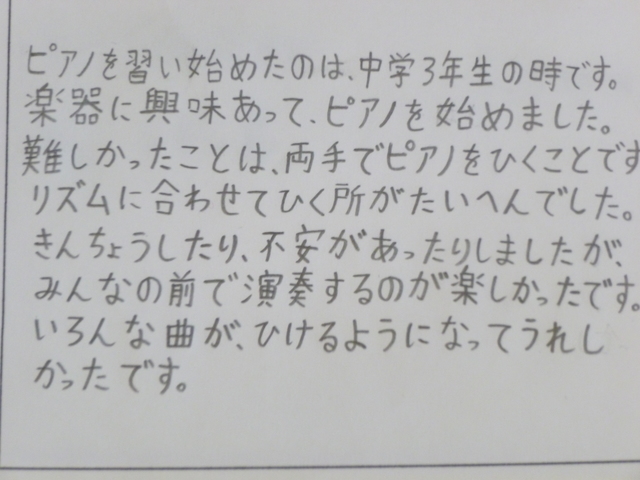 ピアノを習い始めたのは、中学3年生の時です。
楽器に興味あって、ピアノを始めました。
難しかったことは、両手でピアノをひくことです
リズムに合わせてひく所がたいへんでした。
きんちょうしたり、不安があったりしましたが、
みんなの前で演奏するのが楽しかったです。
いろんな曲が、ひけるようになってうれし
かったです。